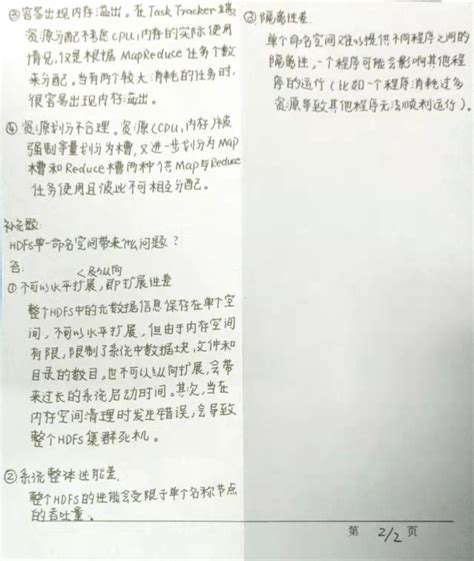 ③容易出现内存溢出。在Task Tracker端,
资源分配不考虑CPU,内存的实际使用
情况,仅是根据MapReduce任务个数
来分配。当有两个较大消耗的任务时,
很容易出现内存溢出。
④资源划分不合理。资源(CPU,内存)被
强制等量划分为槽,又进一步划分为Map
槽和Reduce槽两种供Map与Reduce
任务使用且彼此不可相互分配。
补充题
HDFS单一命名空间带来什么问题?
答:
<&纵向
①不可以水平扩展,即扩展性差
整个HDFS中的元数据信息保存在单个空
间,不可以水平扩展,但由于内存空间
有限,限制了系统中数据块,文件和
目录的数目。也不可以纵向扩展,会带
来过长的系统启动时间。其次,当在
内存空间清理时发生错误,会导致
整个HDFS集群死机。
②系统整体性能差.
整个HDFS的性能会受限于单个名称节点
的吞吐量。
③隔离性差
单个命名空间难以提供不同程序之间的
隔离性,一个程序可能会影响其他程
序的运行(比如一个程序消耗过多
资源导致其他程序无法顺利运行)。
第 2/2 页